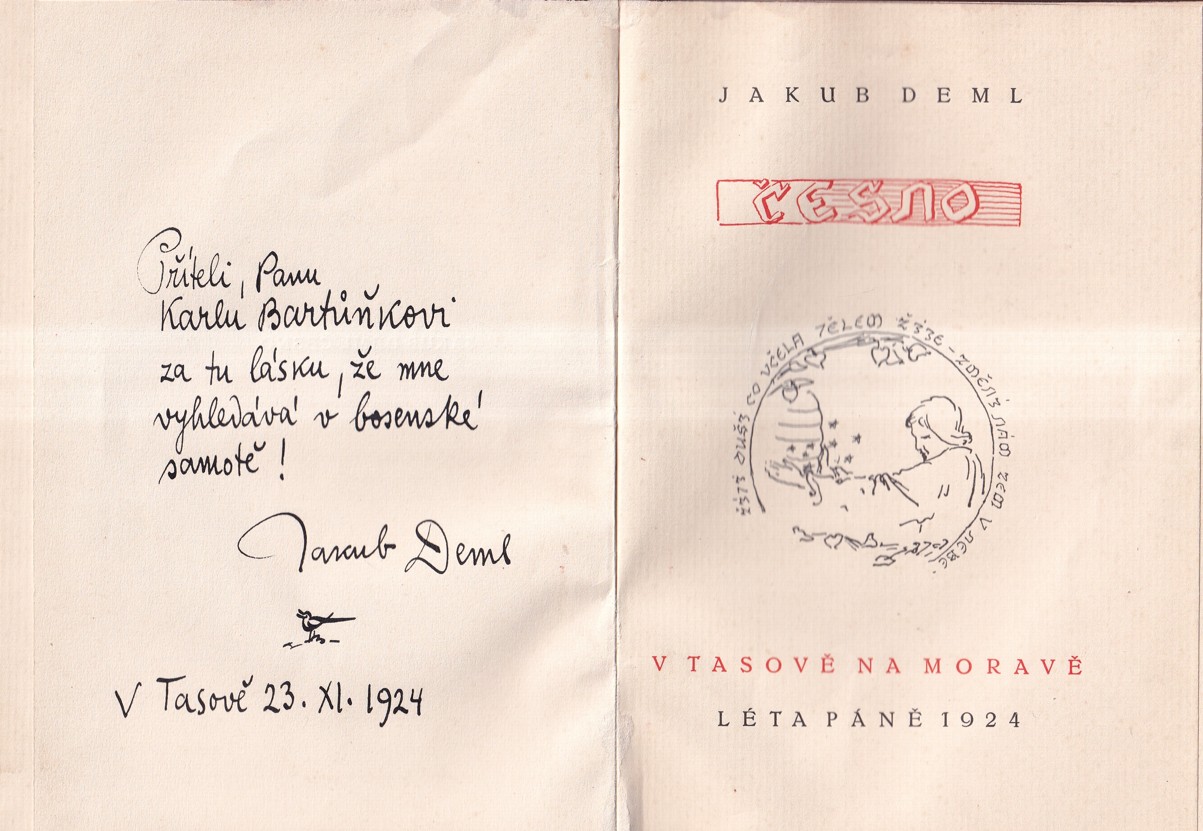 Příteli, Panu
Karlu Bartůňkovi
za tu lásku, že mne
vyhledává v bosenské
samotě!
Jakub Deml
V Tasově 23. XI. 1924
JAKUB DEML
ČESNO
DUŠÍ CO VČELA TĚLEM ŽIJE - NÁM ZEM V NEBE
V TASOVĚ NA MORAVĚ
LÉTA PÁNĚ 1924